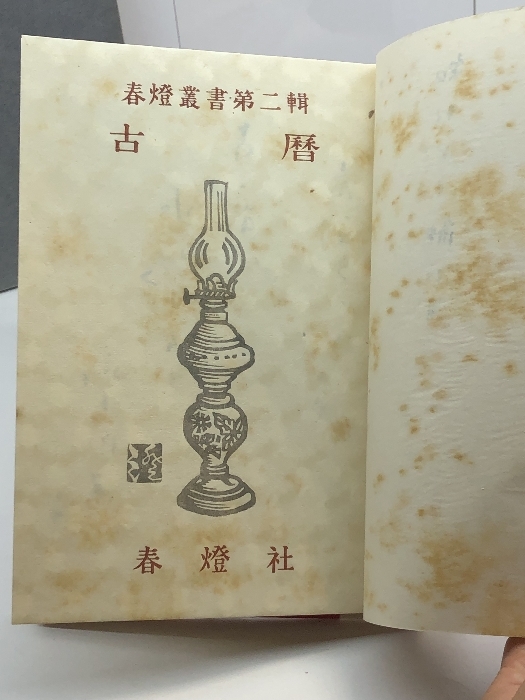 春燈叢書第二輯
古暦
春燈社